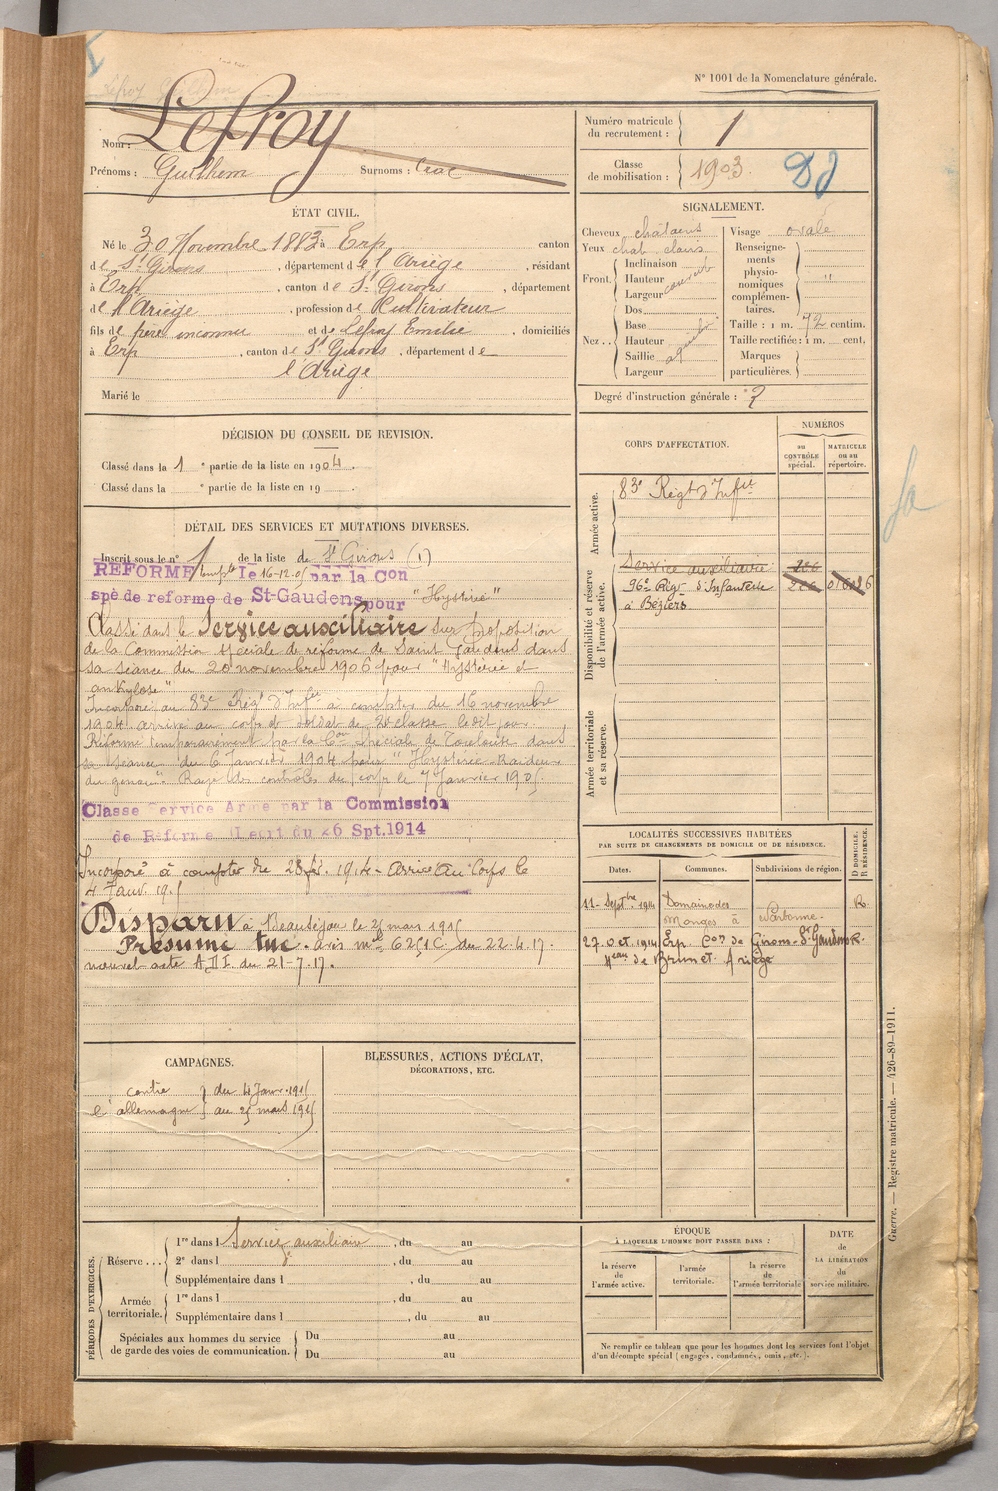 N° 1001 de la Nomenclature générale.
Nom : Lefroy
Prénoms : Guilhem Surnoms :
ÉTAT CIVIL.
Né le 30 Novembre 1883 à Erp canton
de St Girons, département de l'Ariège, résidant
à Erp, canton de St Girons, département
de l'Ariège, profession de Cultivateur
fils de père inconnu et de Lefroy Emilie, domiciliés
à Erp, canton de St Girons, département de
l'Ariège
Marié le
DÉCISION DU CONSEIL DE REVISION.
Classé dans la 1 e partie de la liste en 1904.
Classé dans la e partie de la liste en 19
DÉTAIL DES SERVICES ET MUTATIONS DIVERSES.
Inscrit sous le n° 1 de la liste de St Girons (1)
REFORME le 16-12-05 par la Con
spé de reforme de St-Gaudens pour "Hystérie"
Classé dans le Service auxiliaire sur proposition
de la Commission spéciale de réforme de Saint Gaudens dans
sa séance du 20 novembre 1906 pour "Hystérie et
ankylose"
Incorporé au 83e Régt d'Infie à compter du 16 novembre
1904 arrivé au corps et soldat de 2e classe ledit jour
Réformé temporairement par la Con Spéciale de Toulouse dans
sa séance du 6 Janvier 1904 pour "Hystérie-Raideur
du genou". Rayé des contrôles du corps le 7 Janvier 1905
Classe Service Arme par la Commission
de Reforme du 26 Spt.1914
Incorporé à compter de 28 1914 - arrivé au Corps le
4 Janv. 19
Disparu à Beauséjour le 25 mars 1915
Présumé tué. avis ml 6251C du 22.4.17.
nouvel acte du 21-7.17.
CAMPAGNES.
contre } du 4 Janv. 1915
l'allemagne } au 25 mars 1915
BLESSURES, ACTIONS D'ÉCLAT,
DÉCORATIONS, ETC.
PÉRIODES D'EXERCICES.
Réserve...
1re dans l Service auxiliaire, du au
2e dans l , du au
Supplémentaire dans l , du au
Armée territoriale.
1re dans l , du au
Supplémentaire dans l , du au
Spéciales aux hommes du service
de garde des voies de communication.
Du au
Du au
Numéro matricule
du recrutement : 1
Classe
de mobilisation : 1903.
SIGNALEMENT.
Cheveux châtains
Yeux chat. clairs
Front.
Inclinaison
Hauteur
Largeur
Nez..
Dos
Base
Hauteur
Saillie
Largeur
Visage ovale
Renseigne-
ments
physio-
nomiques
complémen-
taires. "
Taille : 1 m. 72 centim.
Taille rectifiée : 1 m. cent,
Marques
particulières.
Degré d'instruction générale : 2
CORPS D'AFFECTATION.
NUMÉROS
au CONTRÔLE spécial.
MATRICULE ou au répertoire.
Armée active.
83e Régt d'Infie
Disponibilité et réserve
de l'armée active.
Service auxiliaire 226
96e Rég- d'Infanterie 226
à Béziers
Armée territoriale
et sa réserve.
LOCALITÉS SUCCESSIVES HABITÉES
PAR SUITE DE CHANGEMENTS DE DOMICILE OU DE RÉSIDENCE.
Dates. Communes. Subdivisions de région.
D DOMICILE.
R RÉSIDENCE.
11 - Septbre 1911 Domaine des
Monges à Narbonne. R.
27. Oct. 1914 Erp. Con de Girons - St Gaudens R.
Heau de Brunet. Ariège
ÉPOQUE
À LAQUELLE L'HOMME DOIT PASSER DANS :
la réserve
de
l'armée active.
l'armée
territoriale.
la réserve
de
l'armée territoriale
DATE
de
LA LIBÉRATION
du
service militaire.
Ne remplir ce tableau que pour les hommes dont les services font l'objet
d'un décompte spécial (engagés, condamnés, omis, etc.).
Guerre. — Registre matricule. — 426-89-1911.